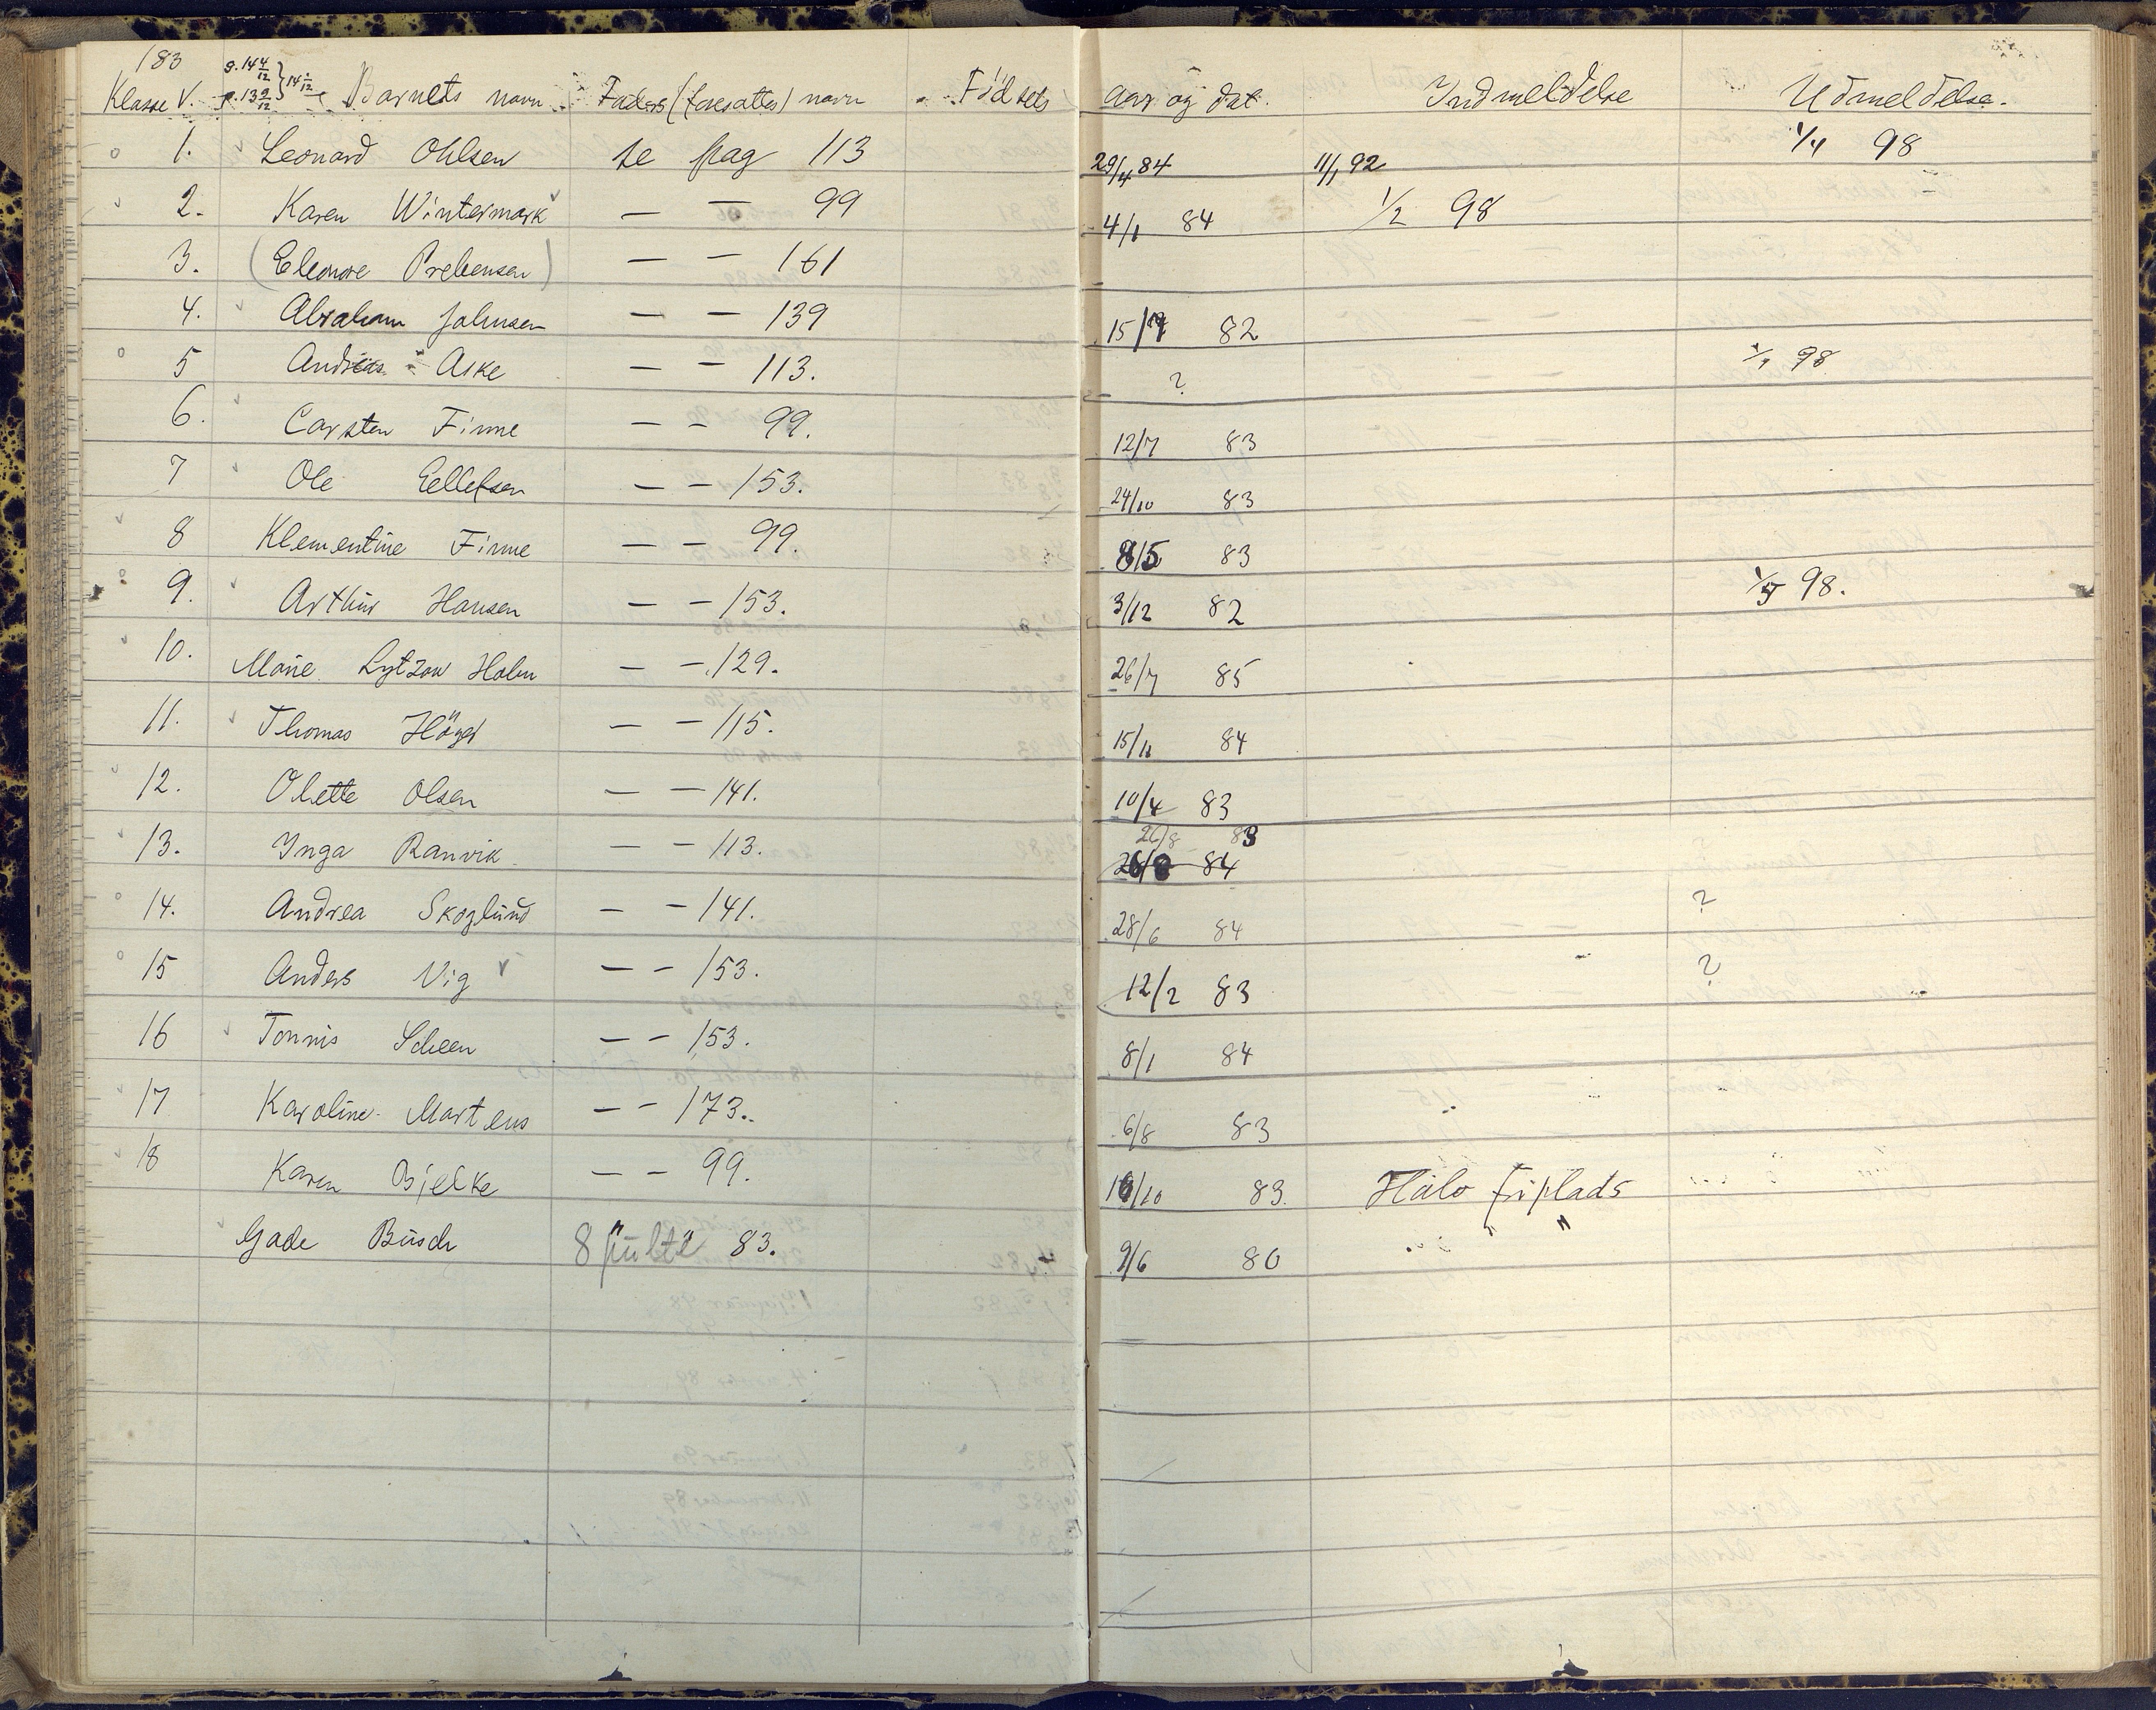 183
Klasse V. Barnets navn Faders (foresattes) navn Fødsels aar og dat. Indmeldelse Udmeldelse.
1. Leonard Ohlsen se pag 113 29/4 84 11/1 92 1/4 98
2. Karen Wintermark — — 99 4/1 84 1/2 98
3. (Eleonore Prebensen) — — 161
4. Abraham Johnsen — — 139 15/9 82
5 Andreas Aske — — 113. ? 98
6. Carsten Finne — — 99. 12/7 83
7 Ole Eellefsen — — 153. 24/10 83
8 Klementine Finne — — 99. 8/5 83
9. Arthur Hansen — — 153. 3/12 82 1/5 98.
10. Marie Lytzow Holm — — 129. 26/7 85
11. Thomas Höyer — — 115. 15/11 84
12. Olette Olsen — — 141. 10/4 83
13. Inga Ranvik — — 113. 26/8 83
26/8 84
14. Andrea Skoglund — — 141. 28/6 84 ?
15 Anders Vig — — 153. 12/2 83 ?
16 Tonnis Scheen — — 153. 8/1 84
17 Karoline Martens — — 173. 6/8 83
18 Karen Bjelke — — 99. 10/10 83. Halv friplads
Gade Busch 8 83. 9/6 80 " "